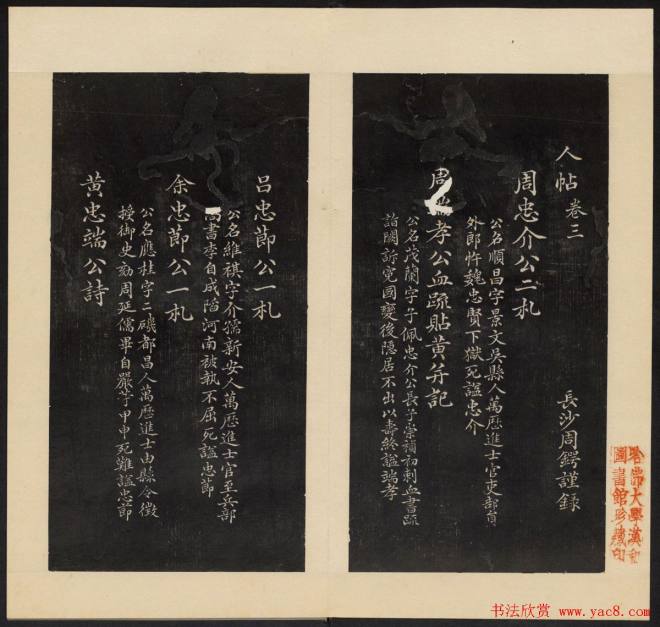 人帖卷三
長沙周鍔謹録
周忠介公二札
公名順昌字景文吳縣人萬歷進士官吏部員
外郎忤魏忠賢下獄死謚忠介
周孝公血疏貼黃并記
公名茂蘭字子佩忠介公長子崇禎初刺血書疏
詣闕訴冤國變後隱居不出以壽終謚端孝
呂忠節公一札
公名維祺字介孺新安人萬歷進士官至兵部
尚書李自成陷河南被執不屈死謚忠節
余忠節公一札
公名應桂字二磯都昌人萬歷進士由縣令徵
授御史劾周延儒畢自嚴于甲申死難謚忠節
黃忠端公詩
哈佛大學漢和
圖書館珍藏印
书法欣赏 www.yac8.com